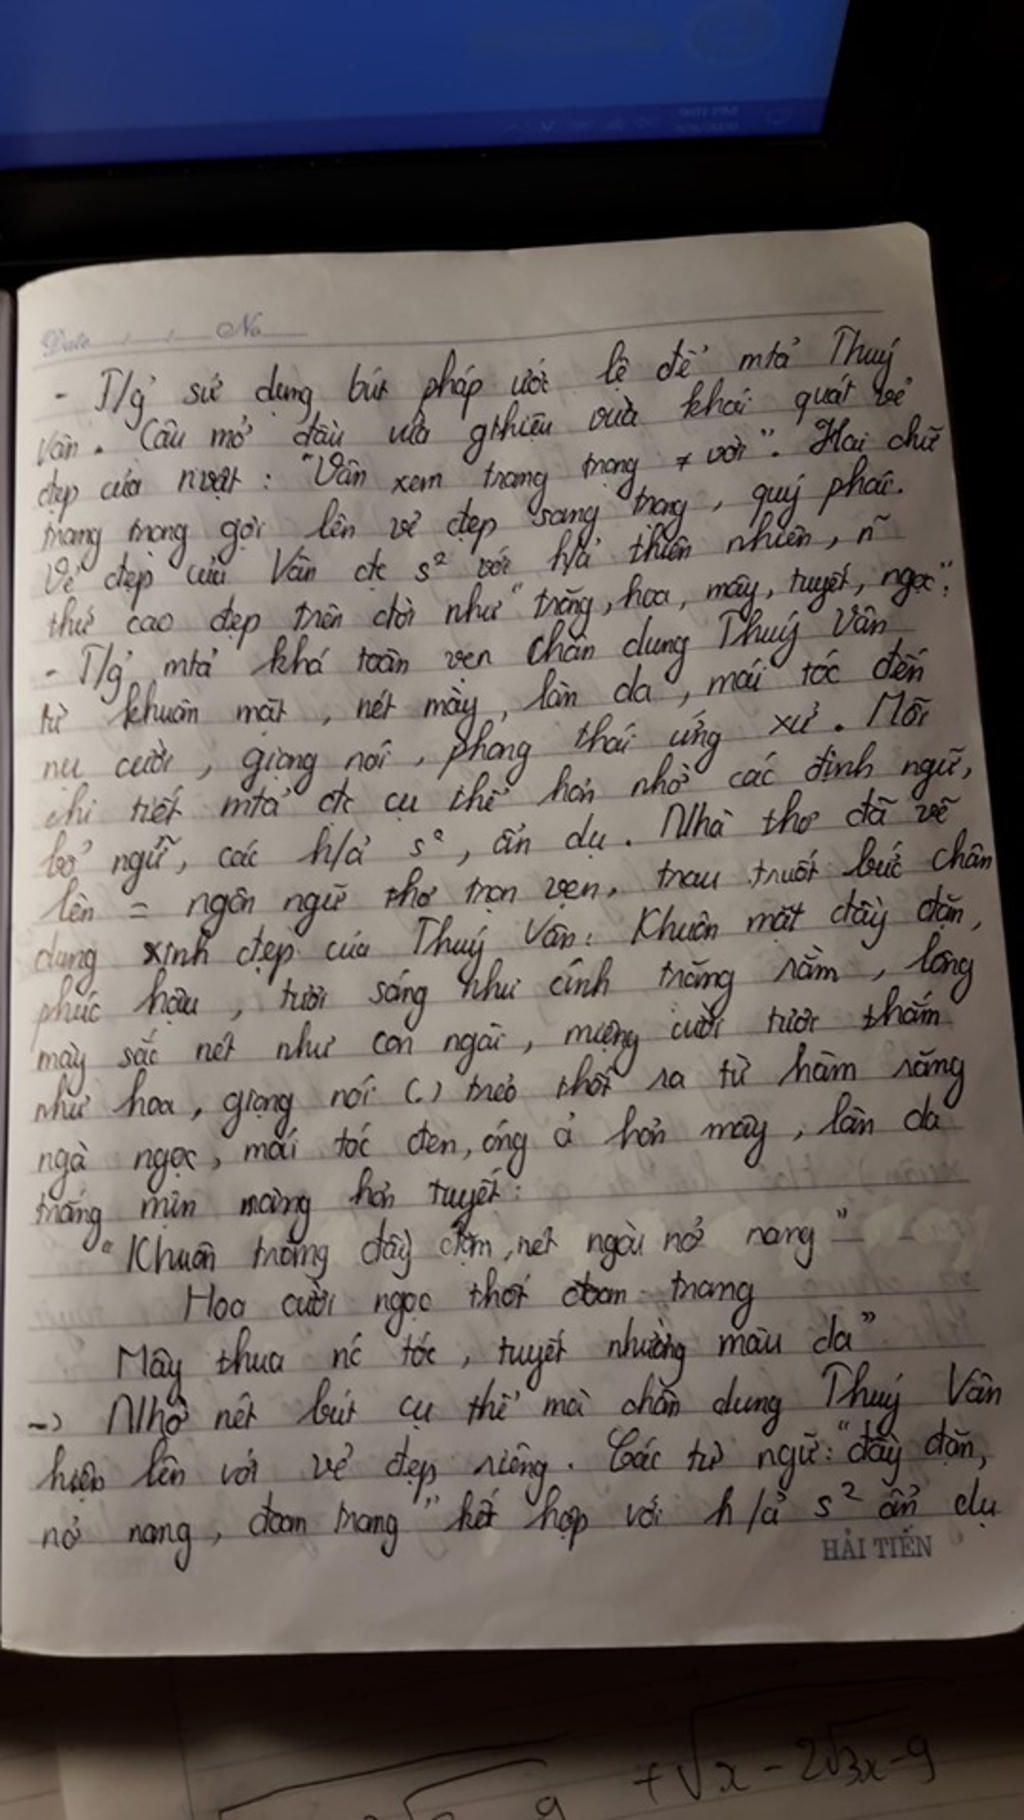 Date / / No
- T/g' sử dụng bút pháp ước lệ để mtả Thuý
Vân. Câu mở đầu vừa gthiệu vừa khái quát vẻ
đẹp của nvật: "Vân xem trang trọng ≠ vời". Hai chữ
trang trọng gợi lên vẻ đẹp sang trọng, quý phái.
Vẻ đẹp của Vân đc s² với h/ả thiên nhiên, ñ
thứ cao đẹp trên đời như "trăng, hoa, mây, tuyết, ngọc":
- T/g' mtả khá toàn vẹn chân dung Thuý Vân
từ khuôn mặt, nét mày, làn da, mái tóc đến
nụ cười, giọng nói, phong thái ứng xử. Mỗi
chi tiết mtả đc cụ thể hơn nhờ các định ngữ,
bổ ngữ, các h/ả s², ẩn dụ. Nhà thơ đã vẽ
lên = ngôn ngữ thơ trọn vẹn, trau truốt bức chân
dung xinh đẹp của Thuý Vân: Khuôn mặt đầy đặn,
phúc hậu, tươi sáng như ánh trăng rằm, lông
mày sắc nét như con ngài, miệng cười tươi thắm
như hoa, giọng nói (.) trẻo thốt ra từ hàm răng
ngà ngọc, mái tóc đen, óng ả hơn mây, làn da
trắng mịn màng hơn tuyết:
"Khuôn trăng đầy đặn, nét ngài nở nang"
Hoa cười ngọc thốt đoan trang
Mây thua nc tóc, tuyết nhường màu da"
-> Nhờ nét bút cụ thể mà chân dung Thuý Vân
hiện lên với vẻ đẹp riêng. Các từ ngữ: "đầy đặn,
nở nang, đoan trang" kết hợp với h/ả s² ẩn dụ
HẢI TIẾN
+√x - 2√3x-9